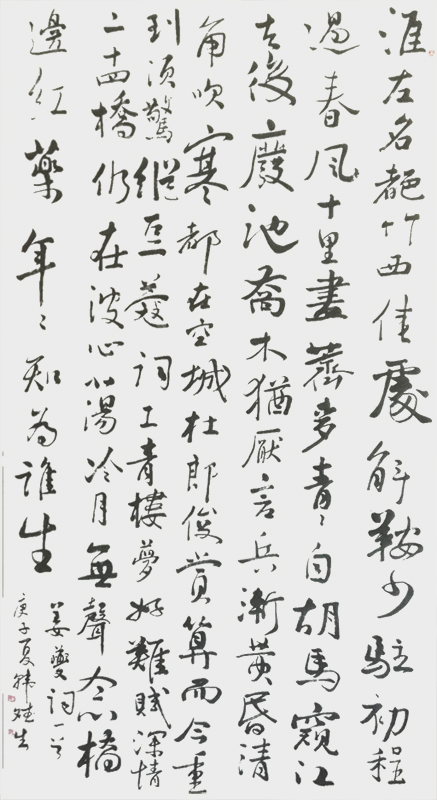 淮左名都竹西佳處解鞍少駐初程
過春風十里盡薺麥青〻自胡馬窺江
去後廢池喬木猶厭言兵漸黃昏清
角吹寒都在空城杜郎俊賞算而今重
到須驚縱豆蔻詞工青樓夢好難賦深情
二十四橋仍在波心蕩冷月無聲念橋
邊紅藥年〻知為誰生
姜夔詞一首
庚子夏韓生